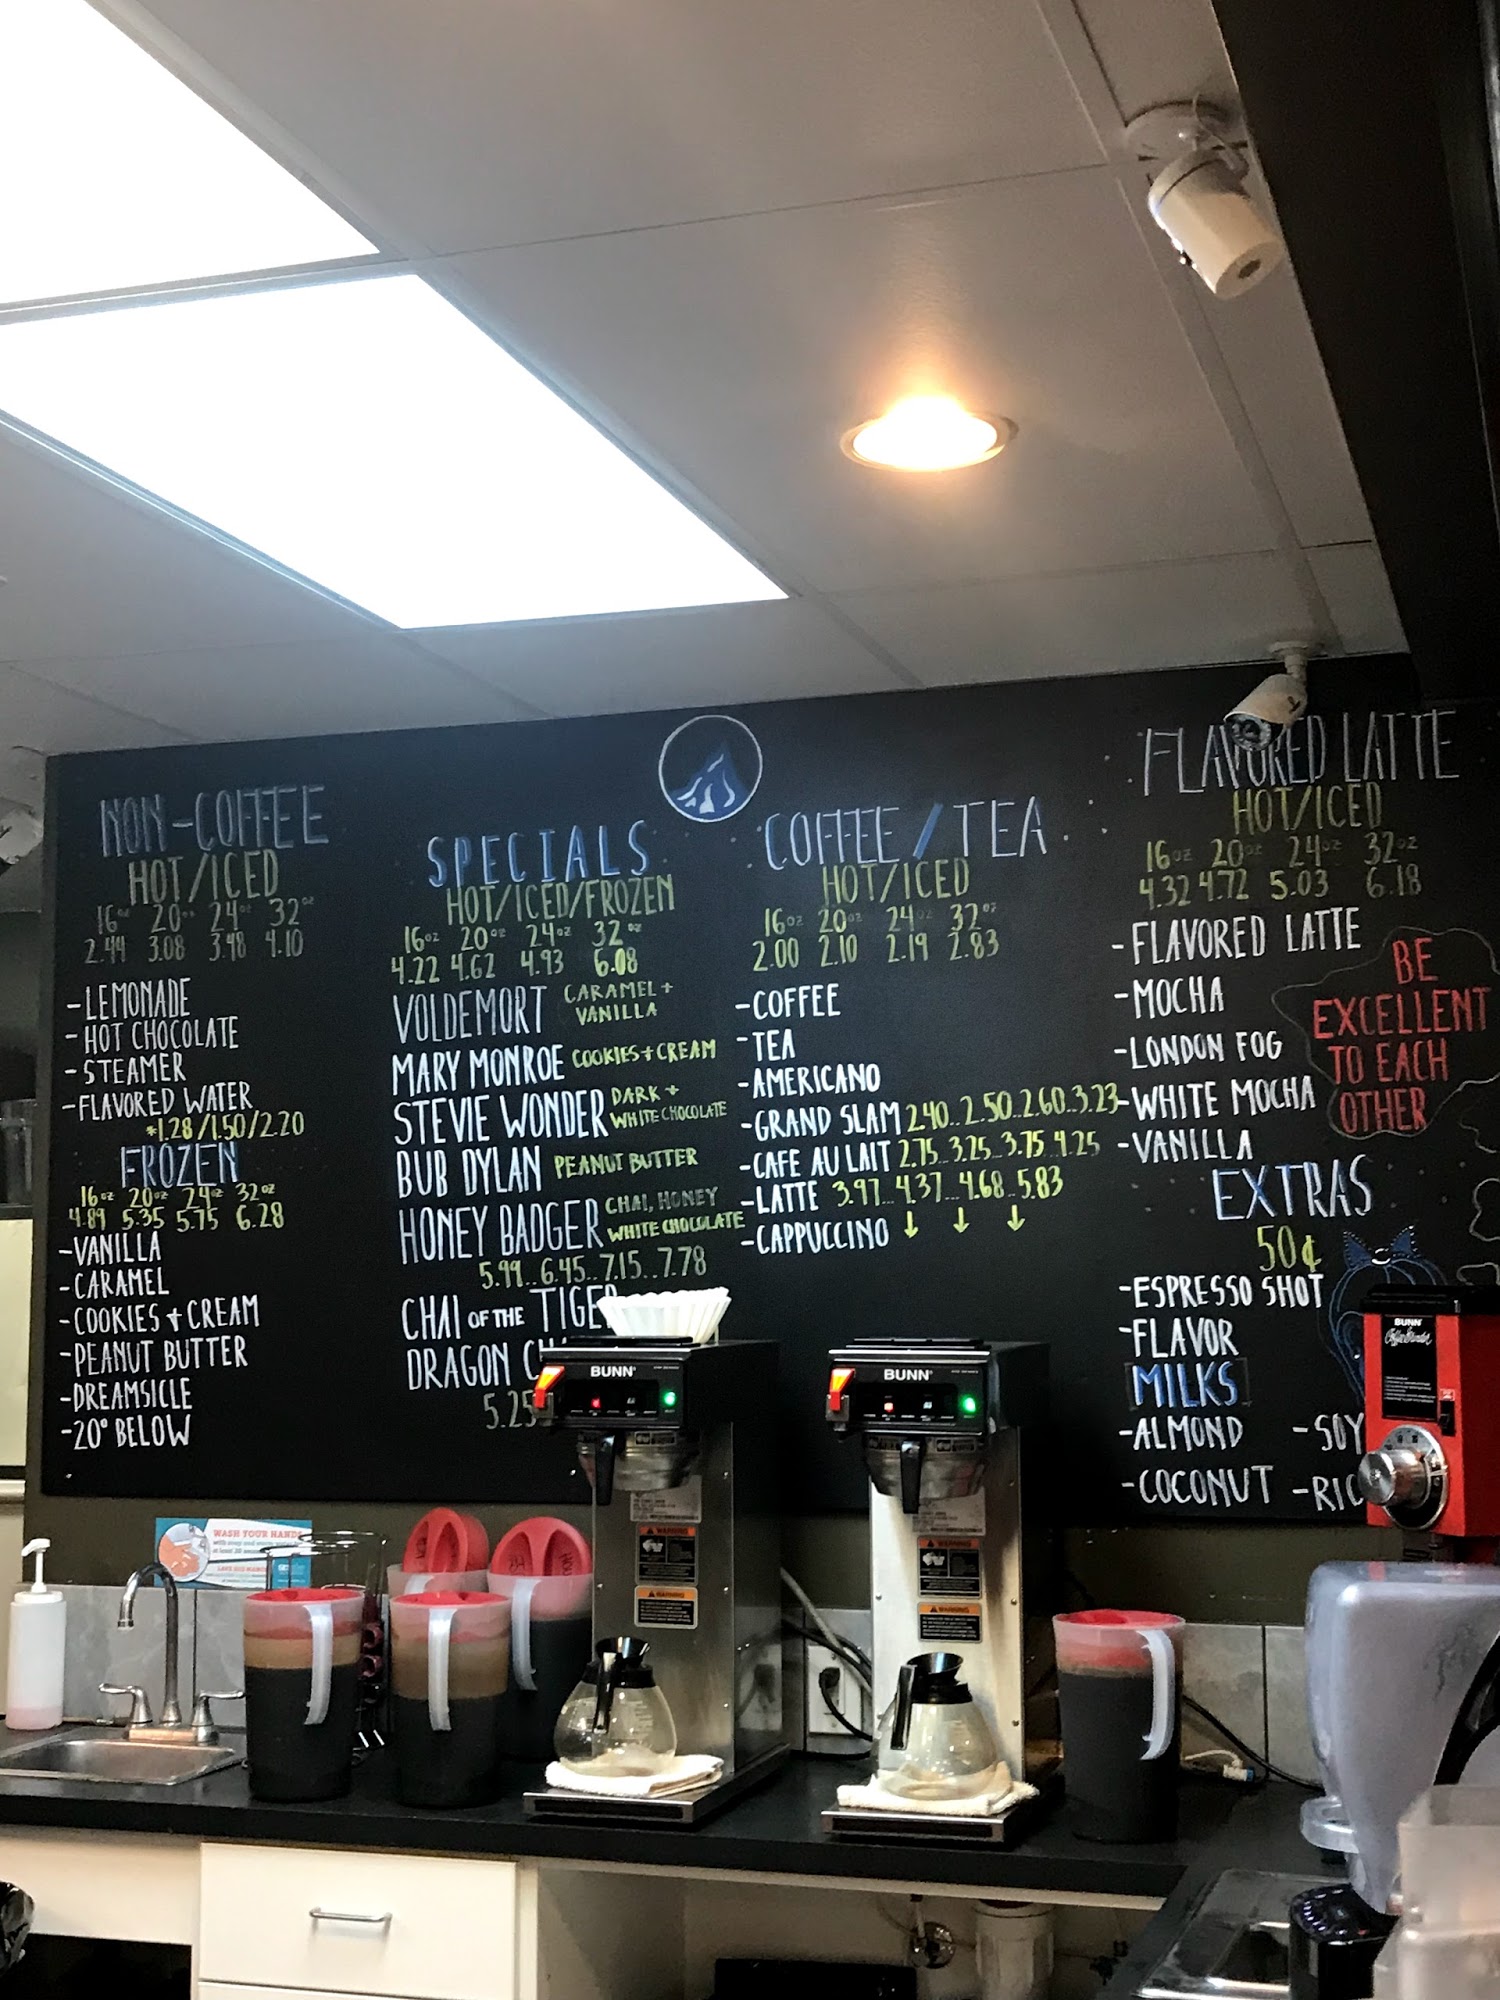 NON-COFFEE
HOT/ICED
16oz 20oz 24oz 32oz
2.44 3.08 3.48 4.10
-LEMONADE
-HOT CHOCOLATE
-STEAMER
-FLAVORED WATER
*1.28/1.50/2.20
FROZEN
16oz 20oz 24oz 32oz
4.89 5.35 5.75 6.28
-VANILLA
-CARAMEL
-COOKIES + CREAM
-PEANUT BUTTER
-DREAMSICLE
-20° BELOW
SPECIALS
HOT/ICED/FROZEN
16oz 20oz 24oz 32oz
4.22 4.62 4.93 6.08
VOLDEMORT CARAMEL +
VANILLA
MARY MONROE COOKIES + CREAM
STEVIE WONDER DARK +
WHITE CHOCOLATE
BUB DYLAN PEANUT BUTTER
HONEY BADGER CHAI, HONEY
WHITE CHOCOLATE
5.99..6.45..7.15..7.78
CHAI OF THE TIGER
DRAGON
5.25
COFFEE / TEA
HOT/ICED
16oz 20oz 24oz 32oz
2.00 2.10 2.19 2.83
-COFFEE
-TEA
-AMERICANO
-GRAND SLAM 2.40..2.50..2.60..3.23
-CAFE AU LAIT 2.75..3.25..3.75..4.25
-LATTE 3.97..4.37..4.68..5.83
-CAPPUCCINO ↓ ↓ ↓
FLAVORED LATTE
HOT/ICED
16oz 20oz 24oz 32oz
4.32 4.72 5.03 6.18
-FLAVORED LATTE
-MOCHA
-LONDON FOG
-WHITE MOCHA
-VANILLA
BE
EXCELLENT
TO EACH
OTHER
EXTRAS
50¢
-ESPRESSO SHOT
-FLAVOR
MILKS
-ALMOND -SOY
-COCONUT -RIC
BUNN
BUNN
BUNN
WARNING
WARNING
WARNING
WARNING
WASH YOUR HANDS